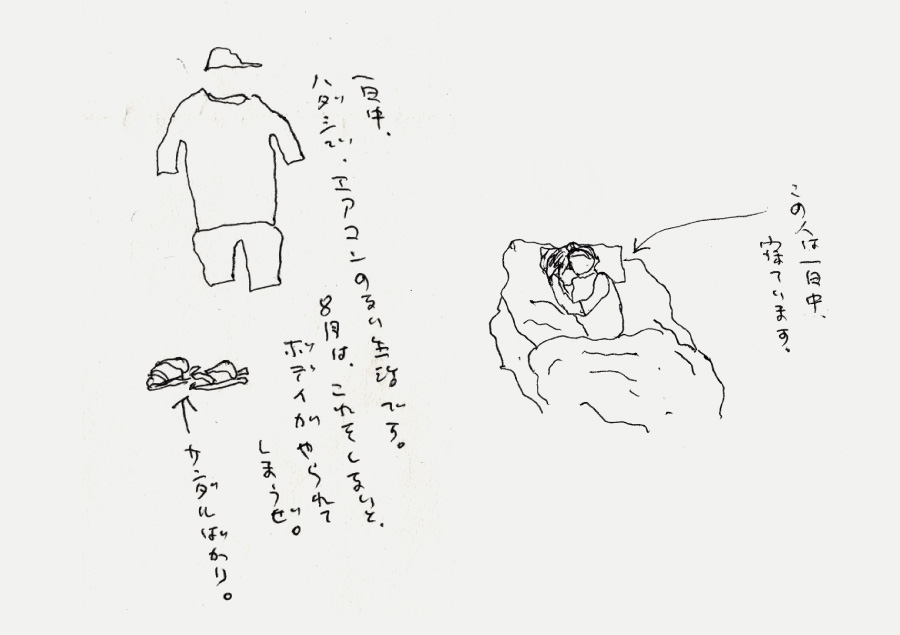 この人は一日中、
寝ています。
一日中、
ハダシで、エアコンのない生活です。
8月は、これをしないと、
ボディがやられて
しまうぜ。
サンダルばかり。